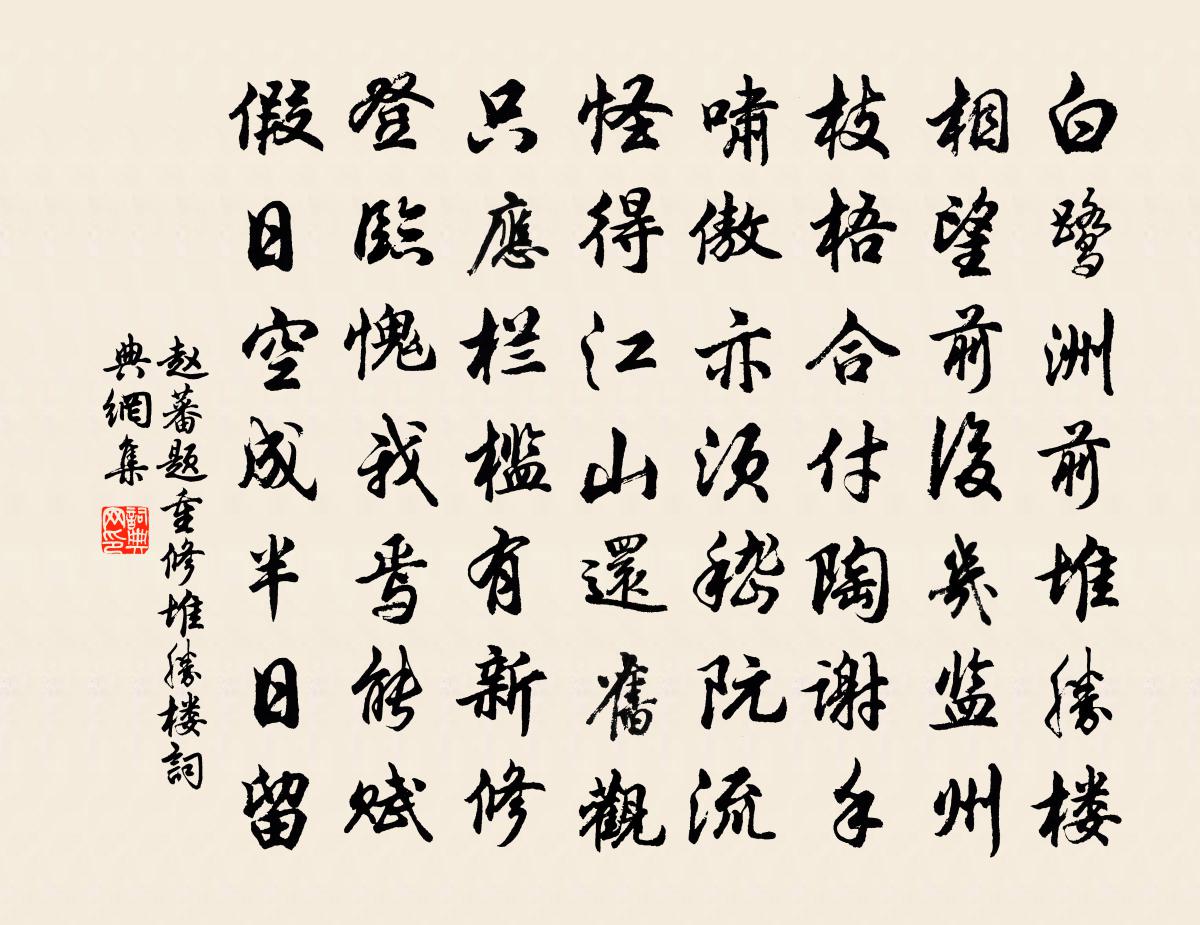 白鹭洲前堆胜楼
相望前后几监州
枝梧合付陶谢手
啸傲亦须嵇阮流
怪得江山还旧观
只应栏槛有新修
登临愧我焉能赋
假日空成半日留
赵蕃题重修堆胜楼词
典网集
词典
网印